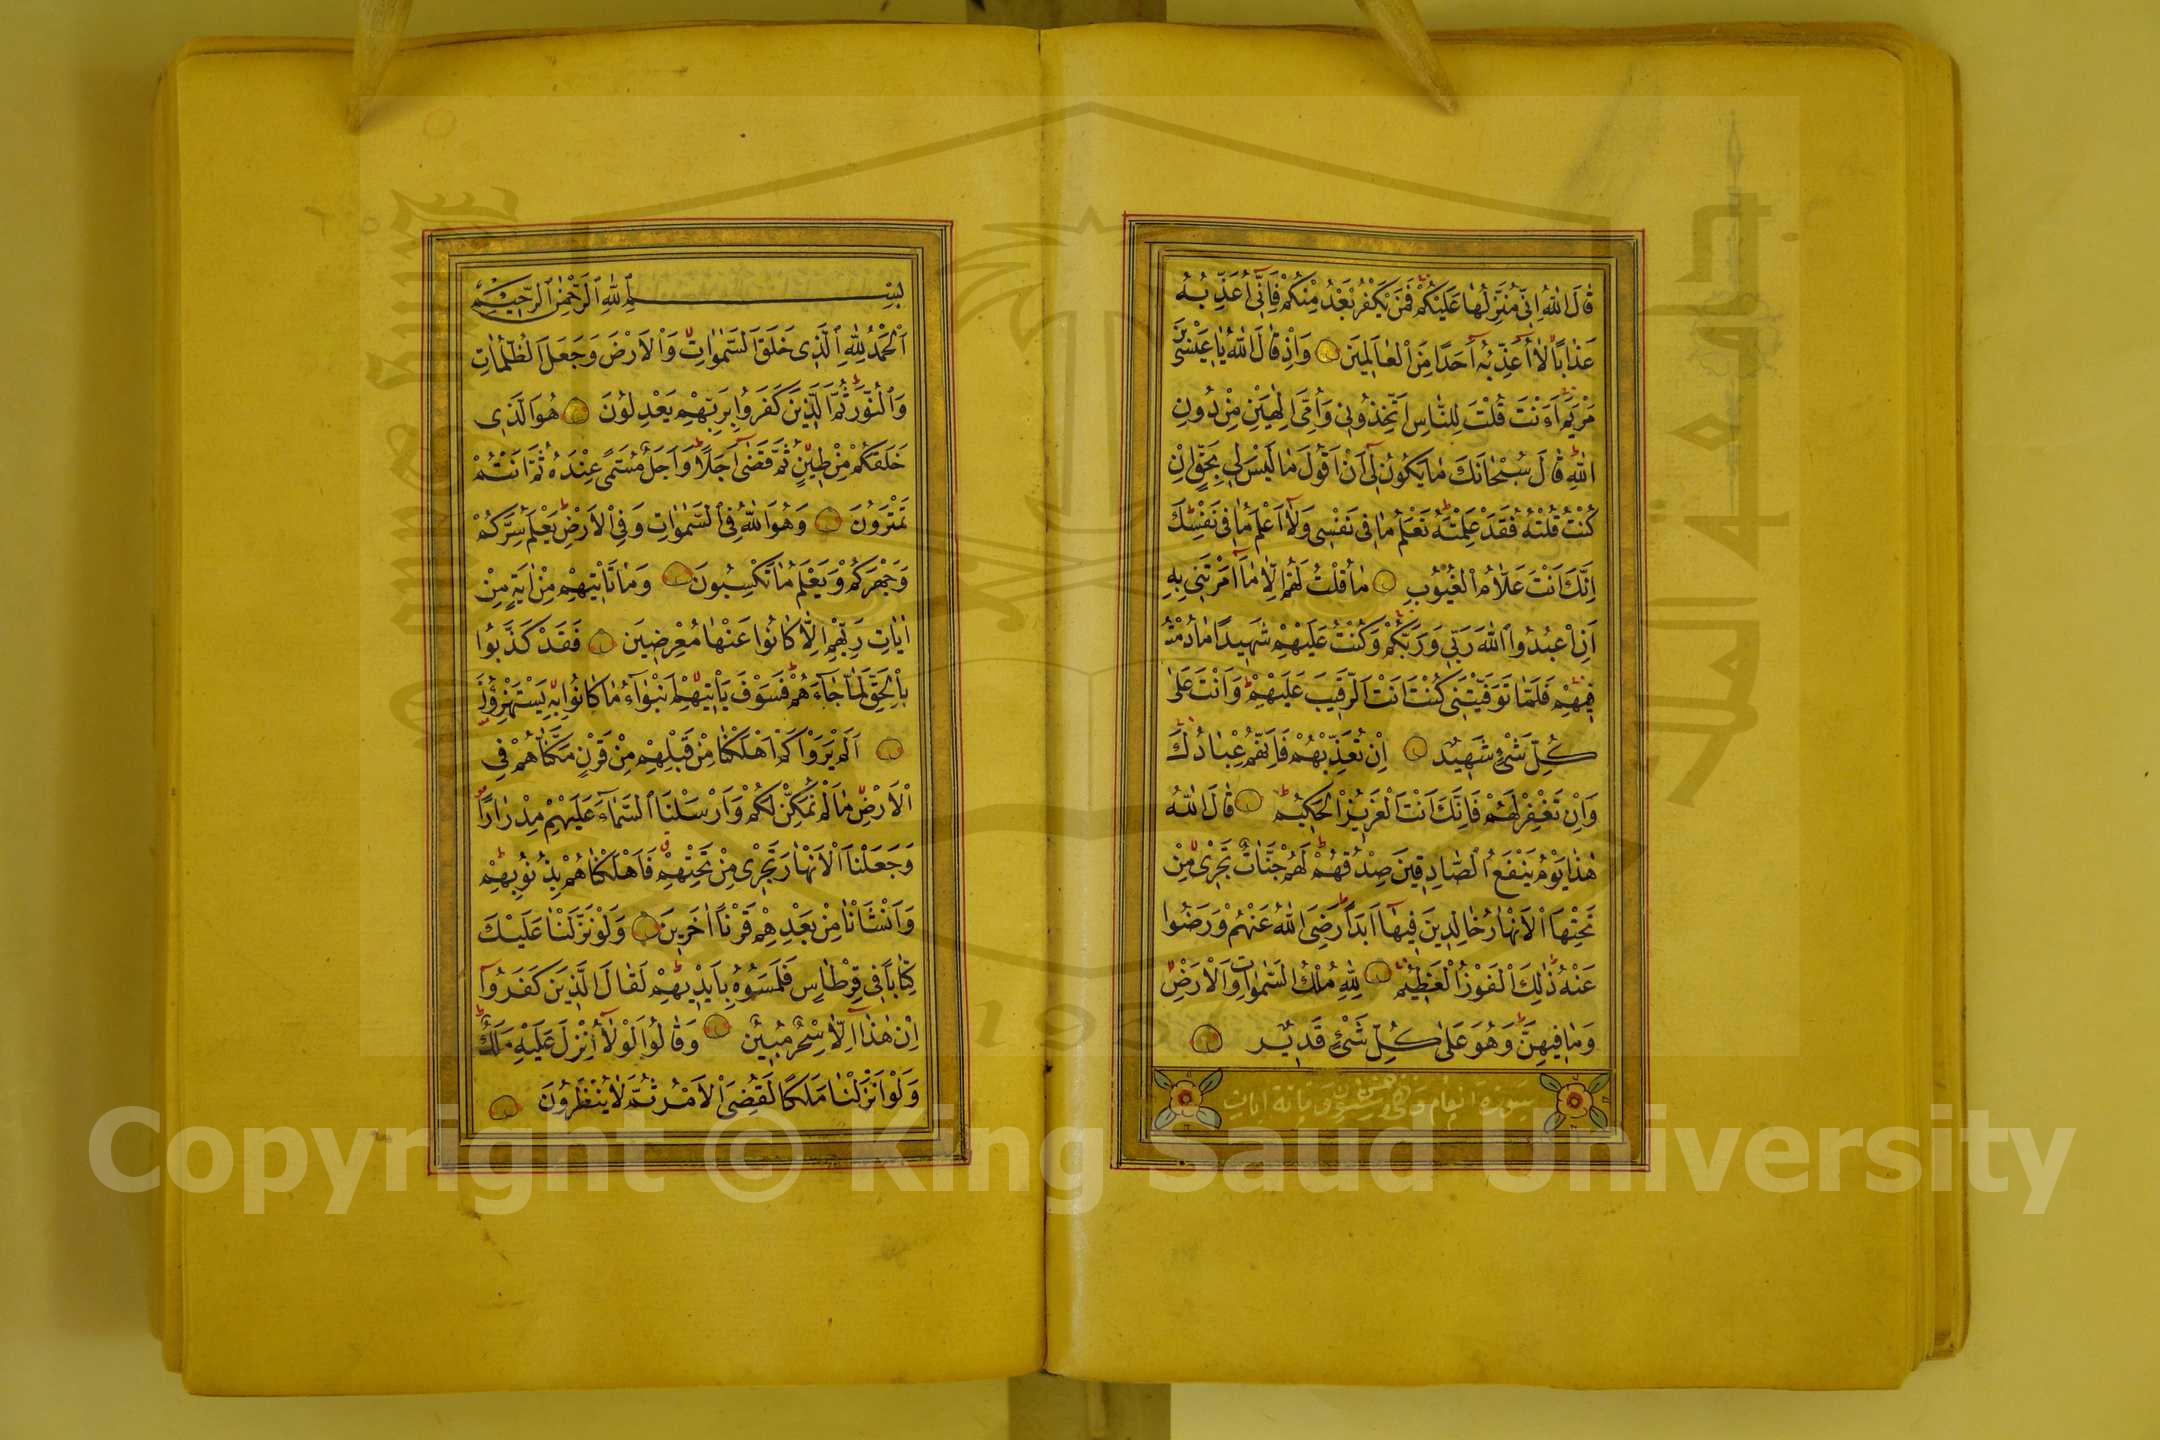 قَالَ اللّٰهُ اِنّٖى مُنَزِّلُهَا عَلَيْكُمْ فَمَنْ يَكْفُرْ بَعْدُ مِنْكُمْ فَاِنّٖى اُعَذِّبُهُ
عَذَابًا لَا اُعَذِّبُهُٓ اَحَدًا مِنَ الْعَالَمٖينَ وَاِذْ قَالَ اللّٰهُ يَا عٖيسَى
مَرْيَمَ ءَاَنْتَ قُلْتَ لِلنَّاسِ اتَّخِذُونٖى وَاُمِّىَ اِلٰهَيْنِ مِنْ دُونِ
اللّٰهِ قَالَ سُبْحَانَكَ مَا يَكُونُ لٖٓى اَنْ اَقُولَ مَا لَيْسَ لٖى بِحَقٍّ اِنْ
كُنْتُ قُلْتُهُ فَقَدْ عَلِمْتَهُ تَعْلَمُ مَا فٖى نَفْسٖى وَلَٓا اَعْلَمُ مَا فٖى نَفْسِكَ
اِنَّكَ اَنْتَ عَلَّامُ الْغُيُوبِ مَا قُلْتُ لَهُمْ اِلَّا مَٓا اَمَرْتَنٖى بِهٖ
اَنِ اعْبُدُوا اللّٰهَ رَبّٖى وَرَبَّكُمْ وَكُنْتُ عَلَيْهِمْ شَهٖيدًا مَا دُمْتُ
فٖيهِمْ فَلَمَّا تَوَفَّيْتَنٖى كُنْتَ اَنْتَ الرَّقٖيبَ عَلَيْهِمْ وَاَنْتَ عَلٰى
كُلِّ شَىْءٍ شَهٖيدٌ اِنْ تُعَذِّبْهُمْ فَاِنَّهُمْ عِبَادُكَ
وَاِنْ تَغْفِرْ لَهُمْ فَاِنَّكَ اَنْتَ الْعَزٖيزُ الْحَكٖيمُ قَالَ اللّٰهُ
هٰذَا يَوْمُ يَنْفَعُ الصَّادِقٖينَ صِدْقُهُمْ لَهُمْ جَنَّاتٌ تَجْرٖى مِنْ
تَحْتِهَا الْاَنْهَارُ خَالِدٖينَ فٖيهَٓا اَبَدًا رَضِىَ اللّٰهُ عَنْهُمْ وَرَضُوا
عَنْهُ ذٰلِكَ الْفَوْزُ الْعَظٖيمُ لِلّٰهِ مُلْكُ السَّمٰوَاتِ وَالْاَرْضِ
وَمَا فٖيهِنَّ وَهُوَ عَلٰى كُلِّ شَىْءٍ قَدٖيرٌ
سورة انعام آيات
بِسْمِ اللّٰهِ الرَّحْمٰنِ الرَّحٖيمِ
اَلْحَمْدُ لِلّٰهِ الَّذٖى خَلَقَ السَّمٰوَاتِ وَالْاَرْضَ وَجَعَلَ الظُّلُمَاتِ
وَالنُّورَ ثُمَّ الَّذٖينَ كَفَرُوا بِرَبِّهِمْ يَعْدِلُونَ هُوَ الَّذٖى
خَلَقَكُمْ مِنْ طٖينٍ ثُمَّ قَضٰٓى اَجَلًا وَاَجَلٌ مُسَمًّى عِنْدَهُ ثُمَّ اَنْتُمْ
تَمْتَرُونَ وَهُوَ اللّٰهُ فِى السَّمٰوَاتِ وَفِى الْاَرْضِ يَعْلَمُ سِرَّكُمْ
وَجَهْرَكُمْ وَيَعْلَمُ مَا تَكْسِبُونَ وَمَا تَأْتٖيهِمْ مِنْ اٰيَةٍ مِنْ
اٰيَاتِ رَبِّهِمْ اِلَّا كَانُوا عَنْهَا مُعْرِضٖينَ فَقَدْ كَذَّبُوا
بِالْحَقِّ لَمَّا جَٓاءَهُمْ فَسَوْفَ يَأْتٖيهِمْ اَنْبٰٓؤُا مَا كَانُوا بِهٖ يَسْتَهْزِؤُنَ
اَلَمْ يَرَوْا كَمْ اَهْلَكْنَا مِنْ قَبْلِهِمْ مِنْ قَرْنٍ مَكَّنَّاهُمْ فِى
الْاَرْضِ مَا لَمْ نُمَكِّنْ لَكُمْ وَاَرْسَلْنَا السَّمَٓاءَ عَلَيْهِمْ مِدْرَارًا
وَجَعَلْنَا الْاَنْهَارَ تَجْرٖى مِنْ تَحْتِهِمْ فَاَهْلَكْنَاهُمْ بِذُنُوبِهِمْ
وَاَنْشَأْنَا مِنْ بَعْدِهِمْ قَرْنًا اٰخَرٖينَ وَلَوْ نَزَّلْنَا عَلَيْكَ
كِتَابًا فٖى قِرْطَاسٍ فَلَمَسُوهُ بِاَيْدٖيهِمْ لَقَالَ الَّذٖينَ كَفَرُٓوا
اِنْ هٰذَٓا اِلَّا سِحْرٌ مُبٖينٌ وَقَالُوا لَوْلَٓا اُنْزِلَ عَلَيْهِ مَلَكٌ
وَلَوْ اَنْزَلْنَا مَلَكًا لَقُضِىَ الْاَمْرُ ثُمَّ لَا يُنْظَرُونَ
Copyright © King Saud University
1957